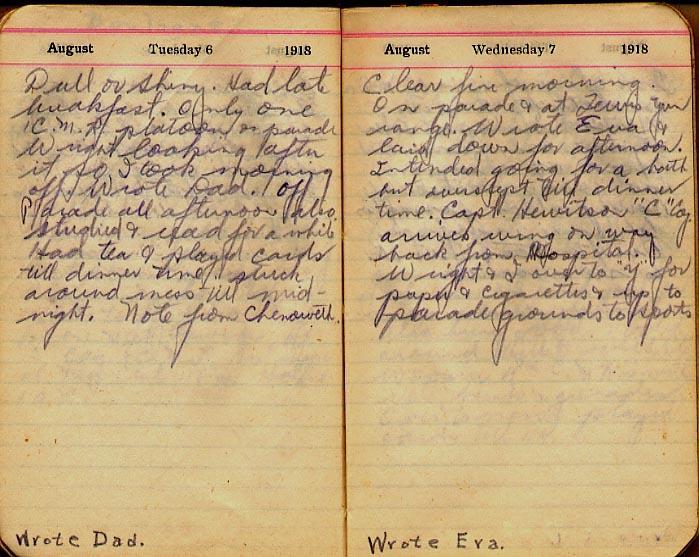 August Tuesday 6 1918
Dull or shiny. Had late
breakfast. Only one
C.M.R. platoon on parade
Wright looking after
it so I took morning
off. Wrote Dad. Off
Parade all afternoon also,
studied & read for a while
Had tea & played cards
till dinner time, stuck
around mess till mid-
night. Note from Chenoweth.
Wrote Dad.
August Wednesday 7 1918
Clear fine morning.
On parade & at Lewis gun
range. Wrote Eva &
laid down for afternoon.
Intended going for a bath
but overslept till dinner
time. Capt. Hewitson "C" Coy.
arrives, being on way
back from Hospital.
Wright & I over to "Y" for
paper & cigarettes & up to
parade grounds to sports
Wrote Eva.